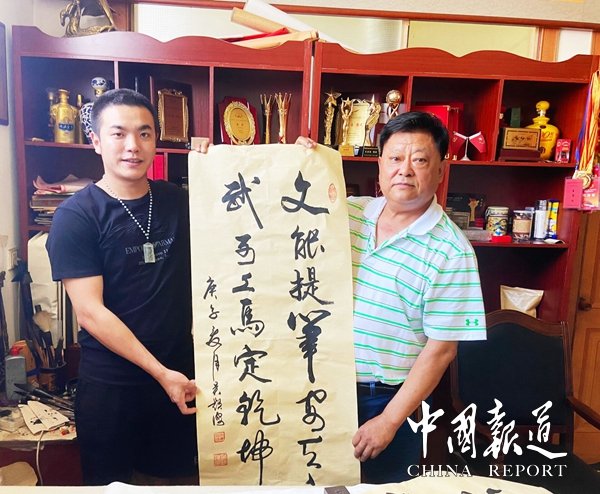 文能提筆安天
武可上馬定乾坤
庚子夏月
中國報道
CHINA REPORT